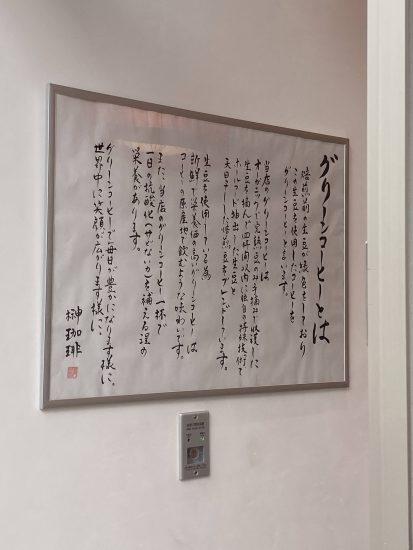 グリーンコーヒーとは
焙煎前の生豆が緑色をしており
この生豆を使用したコーヒーを
グリーンコーヒーと言います。
当店のグリーンコーヒーは
オーガニックで完熟豆のみ手摘みで収穫し
生豆を摘んで四時間以内に独自の特殊技術で
コールド抽出した生豆と
天日干しした焙煎豆をブレンドしています。
生豆を使用している為
新鮮で栄養価の高いグリーンコーヒーは
コーヒーの原産地で飲むような味わいです。
また、当店のグリーンコーヒー一杯で
一日の抗酸化(サビない力)を補える程の
栄養があります。
グリーンコーヒーで毎日が豊かになります様に。
世界中に笑顔が広がります様に…
榊珈琲